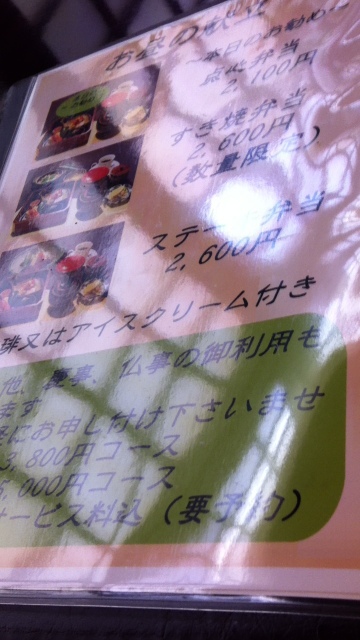 お昼の
～本日のお勧め～
弁当
2,100円
すき焼弁当
2,600円
(数量限定)
ステーキ弁当
2,600円
琲又はアイスクリーム付き
他、慶事、仏事の御利用も
ます
軽にお申し付け下さいませ
3,800円コース
5,000円コース
サービス料込 (要予約)